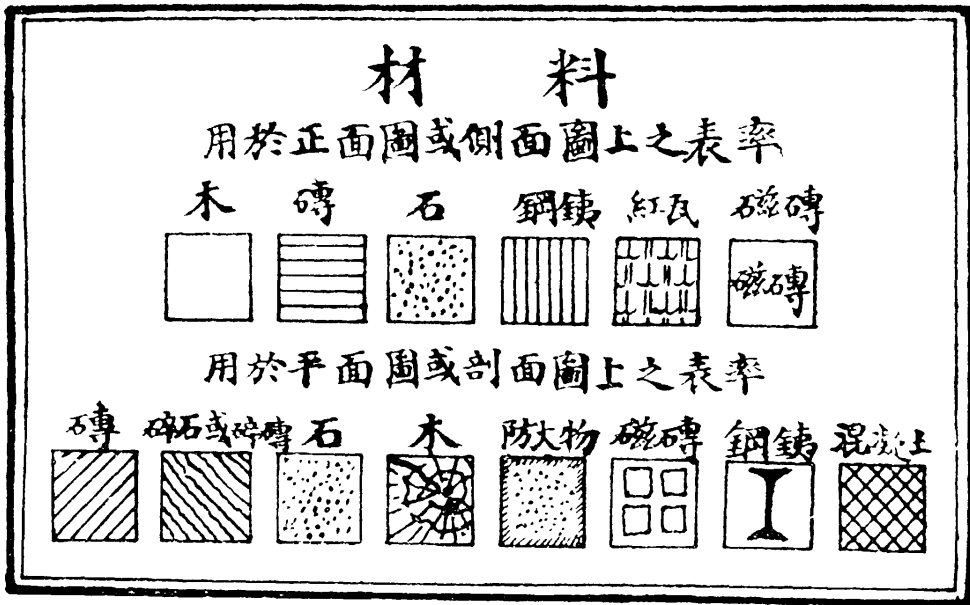 材料
用於正面圖或側面圖上之表率
木 磚 石 鋼銕 紅瓦 磁磚
磁磚
用於平面圖或剖面圖上之表率
磚 碎石或碎磚 石 木 防火物 磁磚 鋼銕 混凝土